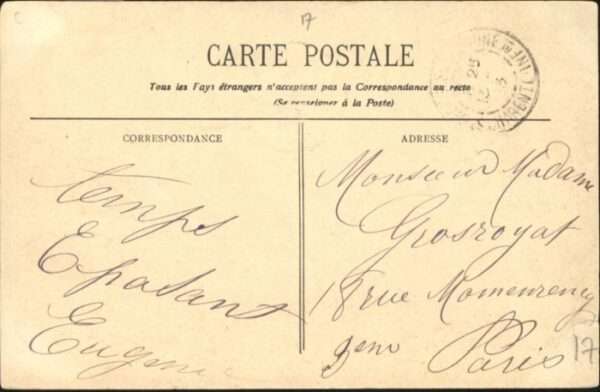 17
CARTE POSTALE
Tous les Pays étrangers n'acceptent pas la Correspondance au recto
(Se renseigner à la Poste)
CORRESPONDANCE
temps
Epatant
Eugenie
ADRESSE
Monsieur Madame
Grosroyat
18 rue Momenrency
Paris
17